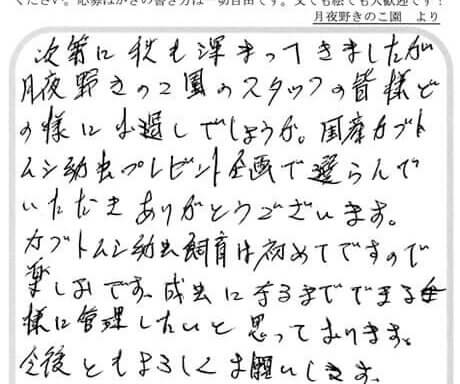 ください。応募はがきの書き方は一切自由です。文でも絵でも大歓迎です！
月夜野きのこ園　より
次第に秋も深まってきましたが
月夜野きのこ園のスタッフの皆様ど
の様にお過しでしょうか。国産カブト
ムシ幼虫プレゼント企画で選らんで
いただきありがとうございます。
カブトムシ幼虫飼育は初めてですので
楽しみです。成虫になるまでできる
様に管理したいと思っております。
今後ともよろしくお願いします。